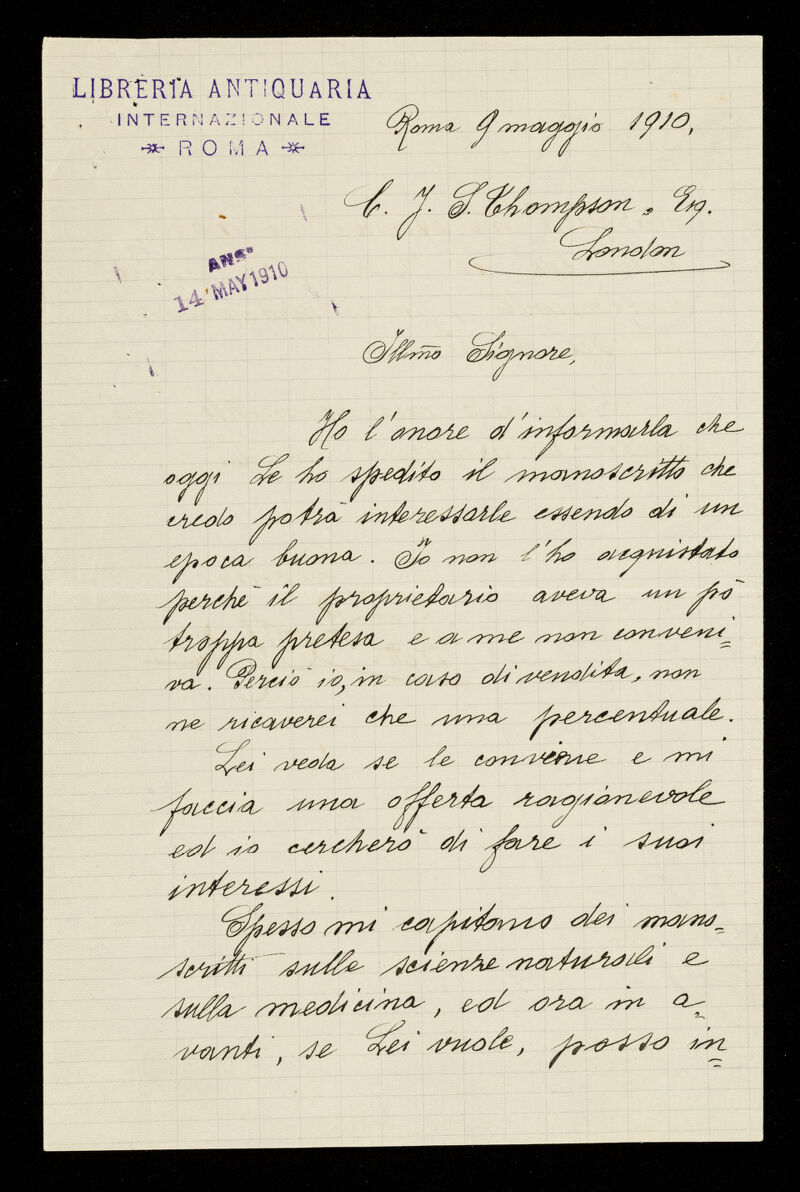 LIBRERIA ANTIQUARIA
INTERNAZIONALE
ROMA
Roma 9 maggio 1910,
C. J. S. Thompson, Esq.
London
ANSD
14 MAY 1910
Illmo Signore,
Ho l'onore d'informarla che
oggi Le ho spedito il manoscritto che
credo potrà interessarle essendo di un
epoca buona. Io non l'ho acquistato
perchè il proprietario aveva un pò
troppa pretesa e a me non conveni=
va. Perciò io, in caso di vendita, non
ne ricaverei che una percentuale.
Lei veda se le conviene e mi
faccia una offerta ragionevole
ed io cercherò di fare i suoi
interessi.
Spesso mi capitano dei mano=
scritti sulle scienze naturali e
sulla medicina, ed ora in a=
vanti, se Lei vuole, posso in=